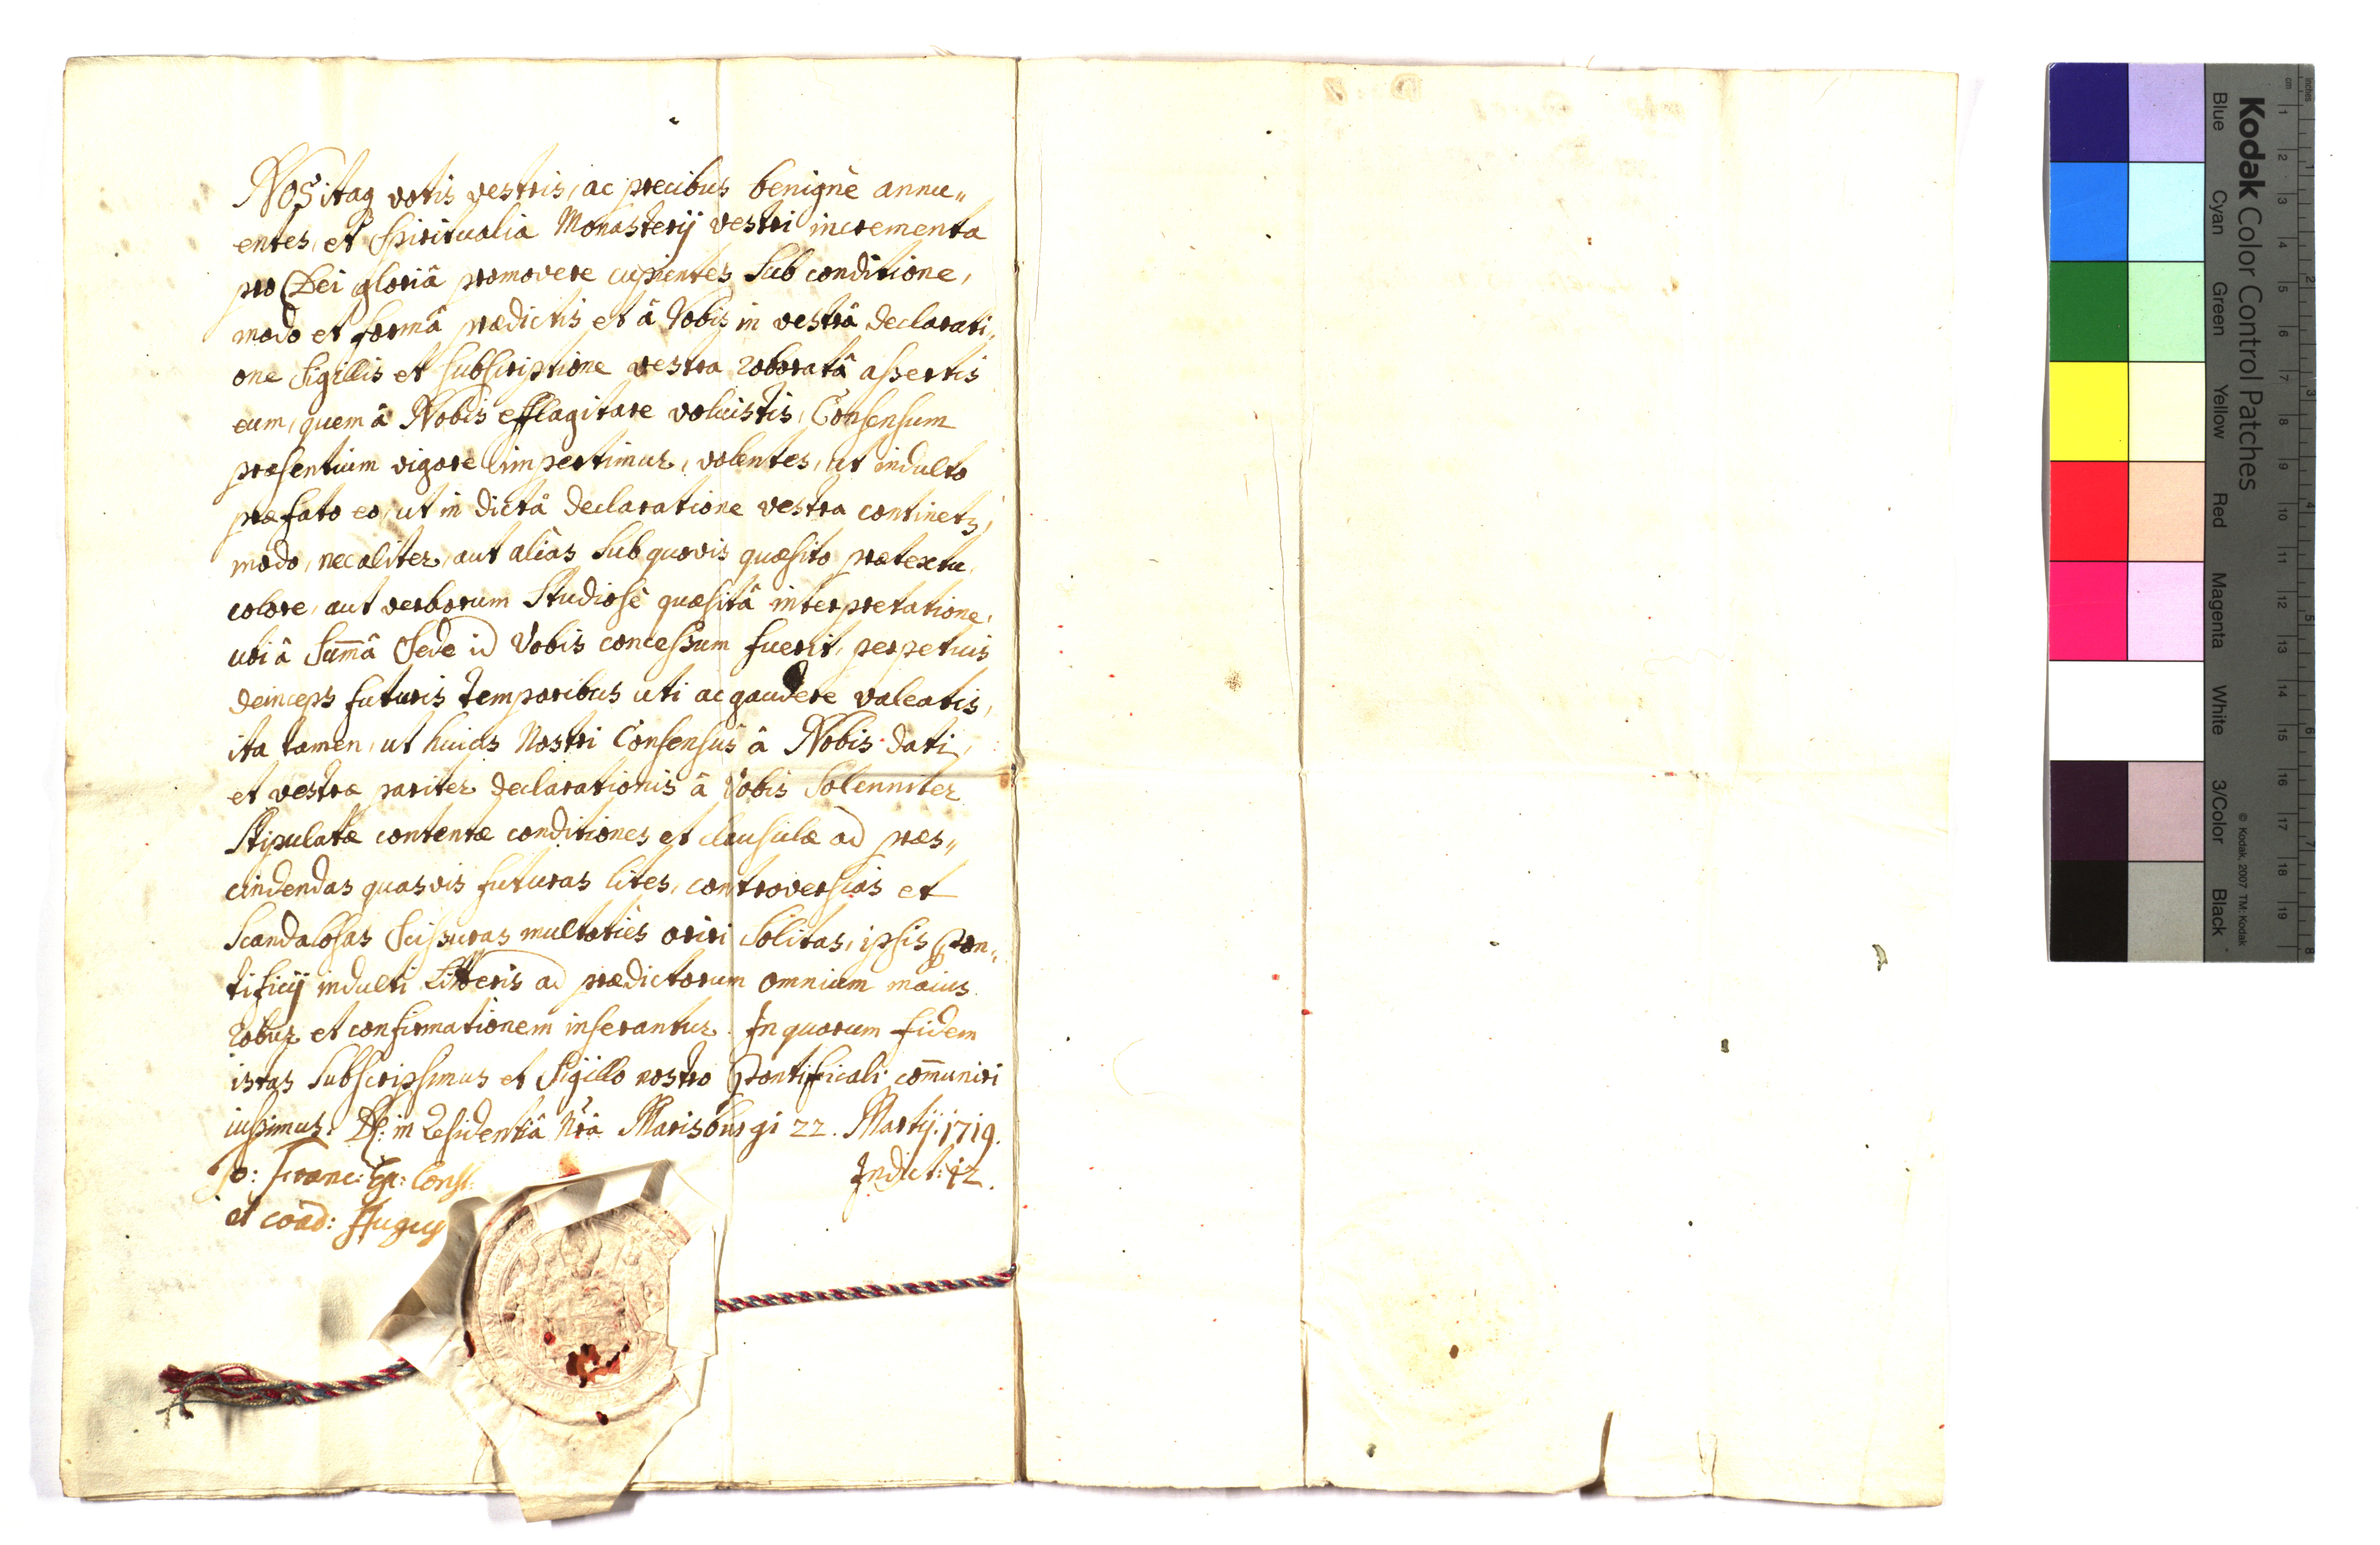 Nos itaq votis vestris, ac precibus benignè annu„
entes, et Spiritualia Monasterij vestri incrementa
pro Dei gloriâ promovere cupientes, Sub conditione,
modo et formâ prædictis et â Vobis in vestrâ declarati„
one Sigillis et Subscriptione vestra roboratâ assertis
eum, quem â Nobis efflagitare voluistis, Consensum
præsentium vigore impertimur, volentes, ut indulto
præfato eo, ut in dictâ declaratione vestra continetz,
modo, nec aliter, aut aliàs Sub quovis quæsito prætextu,
colore, aut verborum Studiosè quæsitâ interpretatione,
ubi â Summ̄â Sede id Vobis concessum fuerit, perpetuis
deinceps futuris temporibus uti ac gaudere valeatis,
ita tamen, ut huius Nostri Consensûs â Nobis dati,
et vestræ pariter declarationis â Vobis Solenniter
Stipulatæ contentæ conditiones et clausulæ ad præs„
cindendas quasvis futuras lites, controversias et
Scandalosas Scissuras multoties oriri Solitas, ipsis Pon„
tificij indulti Litteris ad prædictorum omnium maius
robur et confirmationem inserantur. In quorum fidem
istas Subscripsimus et Sigillo nostro Pontificali com̄uniri
iussimus. Df: in Residentiâ Nrâ Marisburgi 22. Martij. 1719.
Jo: Franc: Ep: Const: Indict: 12.
et coad: Augus
Kodak Color Control Patches
Blue Cyan Green Yellow Red Magenta White 3/Color Black
© Kodak, 2007 TM: Kodak
cm 1 2 3 4 5 6 7 8 9 10 11 12 13 14 15 16 17 18 19
inches 1 2 3 4 5 6 7 8